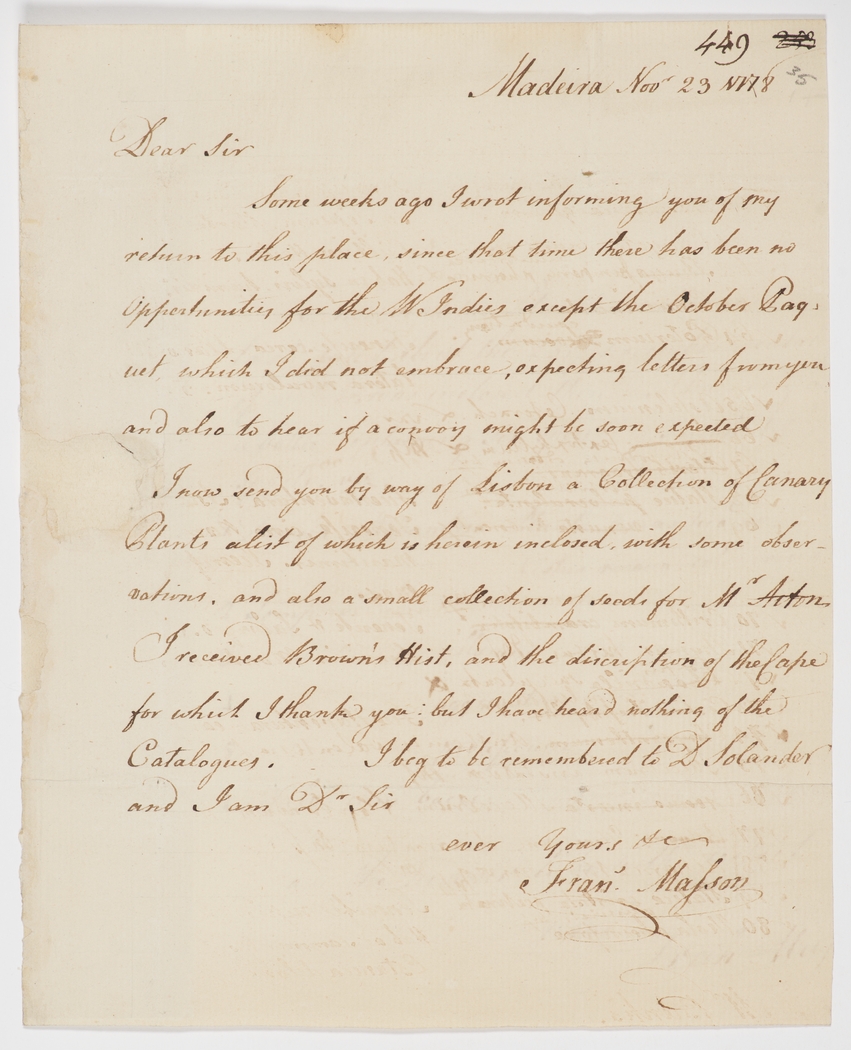 449
36
Madeira Novr 23 1778
Dear Sir
Some weeks ago I wrot informing you of my
return to this place, since that time there has been no
Oppertunities for the W Indies except the October Paq:
uet, which I did not embrace, expecting letters from you
and also to hear if a convoy might be soon expected
I now send you by way of Lisbon a Collection of Canary
Plants a list of which is herein inclosed, with some obser-
vations, and also a small collection of seeds for Mr Aiton
I received Brown's Hist, and the discription of the Cape
for which I thank you: but I have heard nothing of the
Catalogues. I beg to be remembered to D Solander
and I am Dr Sir
ever Yours &c
Frans. Masson